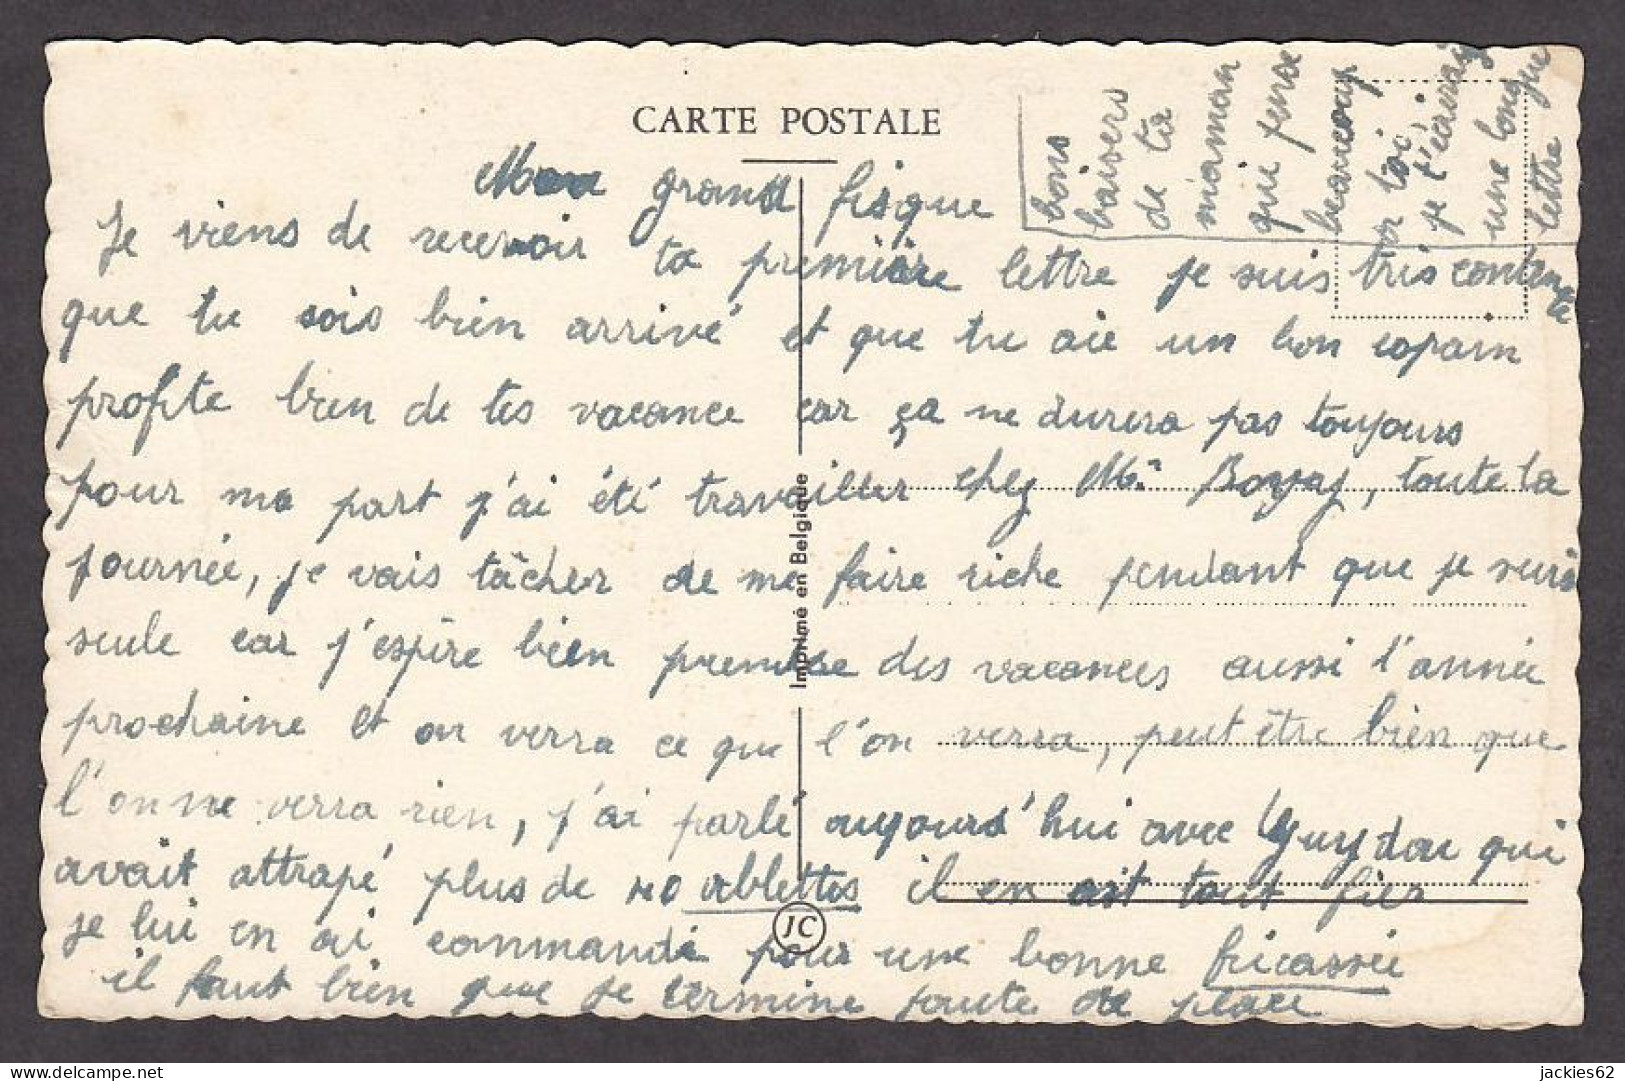 CARTE POSTALE
Mon grand fisque
Je viens de recevoir ta première lettre je suis très contente
que tu sois bien arrivé et que tu aie un bon copain
profite bien de tes vacance car ça ne durera pas toujours
pour ma part j'ai été travailler chez Mr Boyaj, toute la
journée, je vais tâcher de me faire riche pendant que je suis
seule car j'espère bien prendre des vacances aussi l'année
prochaine et on verra ce que l'on verra, peut être bien que
l'on ne verra rien, j'ai parlé aujours'hui avec Guydou qui
avait attrapé plus de 40 ablettes il en ait tout fier
je lui en ai commandé pour une bonne fricassée
il faut bien que je termine faute de place
bons
baisers
de ta
maman
qui pense
beaucoup
à toi
je t'écrirai
une longue
lettre
Imprimé en Belgique
JC
jackies62